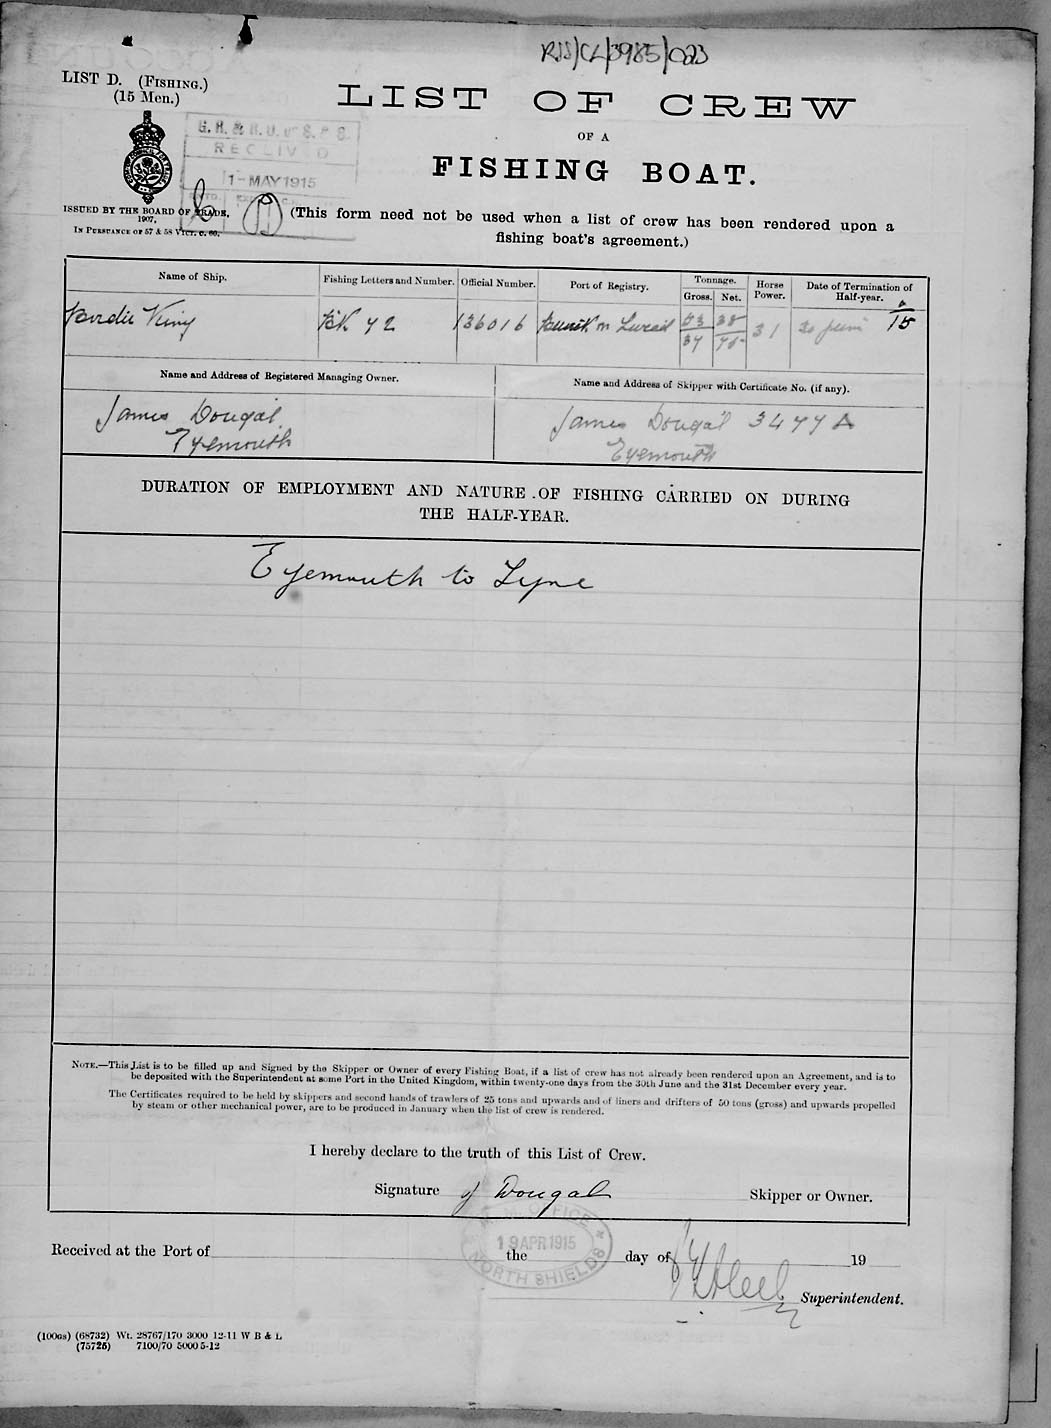 RSS/CL/3985/023
LIST D. (FISHING.)
(15 Men.)
LIST OF CREW
OF A
FISHING BOAT.
G. R. & R. O. of S. & S.
RECEIVED
1 - MAY 1915
ISSUED BY THE BOARD OF TRADE,
1907,
IN PURSUANCE OF 57 & 58 VICT. C. 60.
(This form need not be used when a list of crew has been rendered upon a
fishing boat's agreement.)
Name of Ship. Fishing Letters and Number. Official Number. Port of Registry. Tonnage. Gross. Net. Horse Power. Date of Termination of Half-year.
Birdie King BK 42 136016 31 30 June 15
Name and Address of Registered Managing Owner. Name and Address of Skipper with Certificate No. (if any).
James Dougal James Dougal 3477 A
Eyemouth Eyemouth
DURATION OF EMPLOYMENT AND NATURE OF FISHING CARRIED ON DURING
THE HALF-YEAR.
Eyemouth to Tyne
NOTE.—This List is to be filled up and Signed by the Skipper or Owner of every Fishing Boat, if a list of crew has not already been rendered upon an Agreement, and is to
be deposited with the Superintendent at some Port in the United Kingdom, within twenty-one days from the 30th June and the 31st December every year.
The Certificates required to be held by skippers and second hands of trawlers of 25 tons and upwards and of liners and drifters of 50 tons (gross) and upwards propelled
by steam or other mechanical power, are to be produced in January when the list of crew is rendered.
I hereby declare to the truth of this List of Crew.
Signature J Dougal Skipper or Owner.
M. M. OFFICE
19 APR 1915
NORTH SHIELDS
Received at the Port of the day of 19
Superintendent.
(100GS) (68732) Wt. 28767/170 3000 12-11 W B & L
(75725) 7100/70 5000 5-12